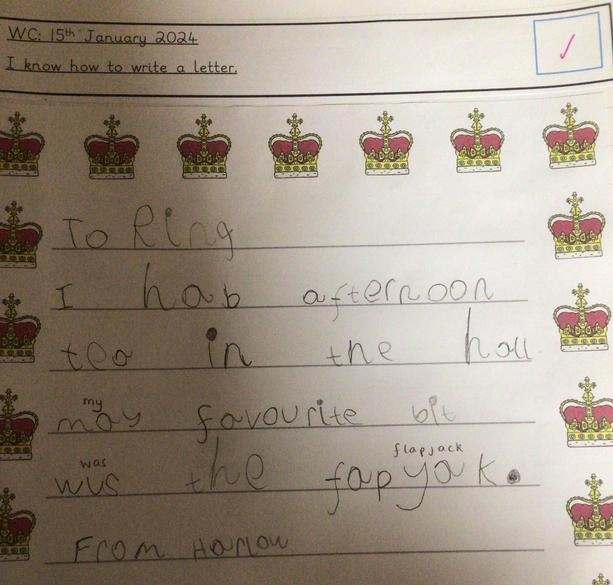 WC: 15th January 2024
I know how to write a letter.
To Ring
I hab afternoon
tea in the hall
my
may favourite bit
was flapjack
wus the fapyak.
From Harlow